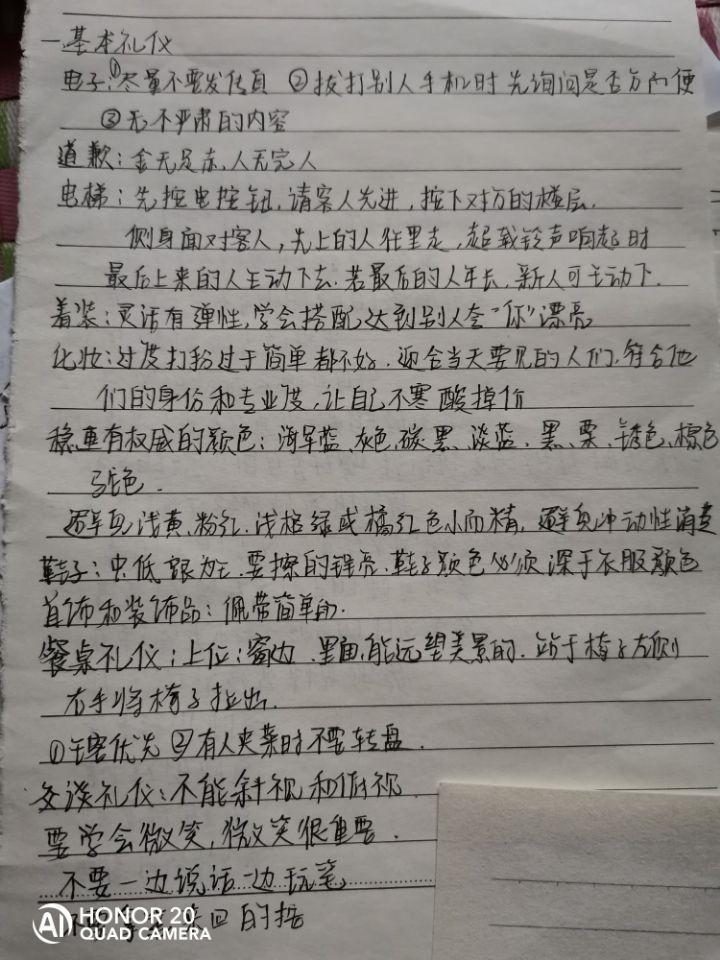 一.基本礼仪
电子:①尽量不要发传真 ②拔打别人手机时先询问是否方便
③无不严肃的内容
道歉:金无足赤,人无完人
电梯:先按电按钮,请客人先进,按下对方的楼层.
侧身面对客人,先上的人往里走,超载铃声响起时
最后上来的人主动下去.若最后的人年长,新人可主动下.
着装:灵活有弹性,学会搭配,达到别人夸"你"漂亮
化妆:过度打粉过于简单都不好.迎合当天要见的人们,符合他
们的身份和专业度,让自己不寒酸掉价
稳重有权威的颜色:海军蓝、灰色、碳黑、淡蓝、黑、栗、锈色、棕色
驼色.
避免浅黄、粉红、浅格绿或橘红色小而精,避免冲动性消费
鞋子:中低跟为主.要擦的锃亮.鞋子颜色必须深于衣服颜色
首饰和装饰品:佩带简单的.
餐桌礼仪:上位:窗边、里面,能远望美景的.站于椅子左侧
右手将椅子拉出.
①主客优先 ②有人夹菜时不要转盘.
交谈礼仪:不能斜视和俯视
要学会微笑,微笑很重要.
不要一边说话一边玩笔
来回的
HONOR 20
AI QUAD CAMERA